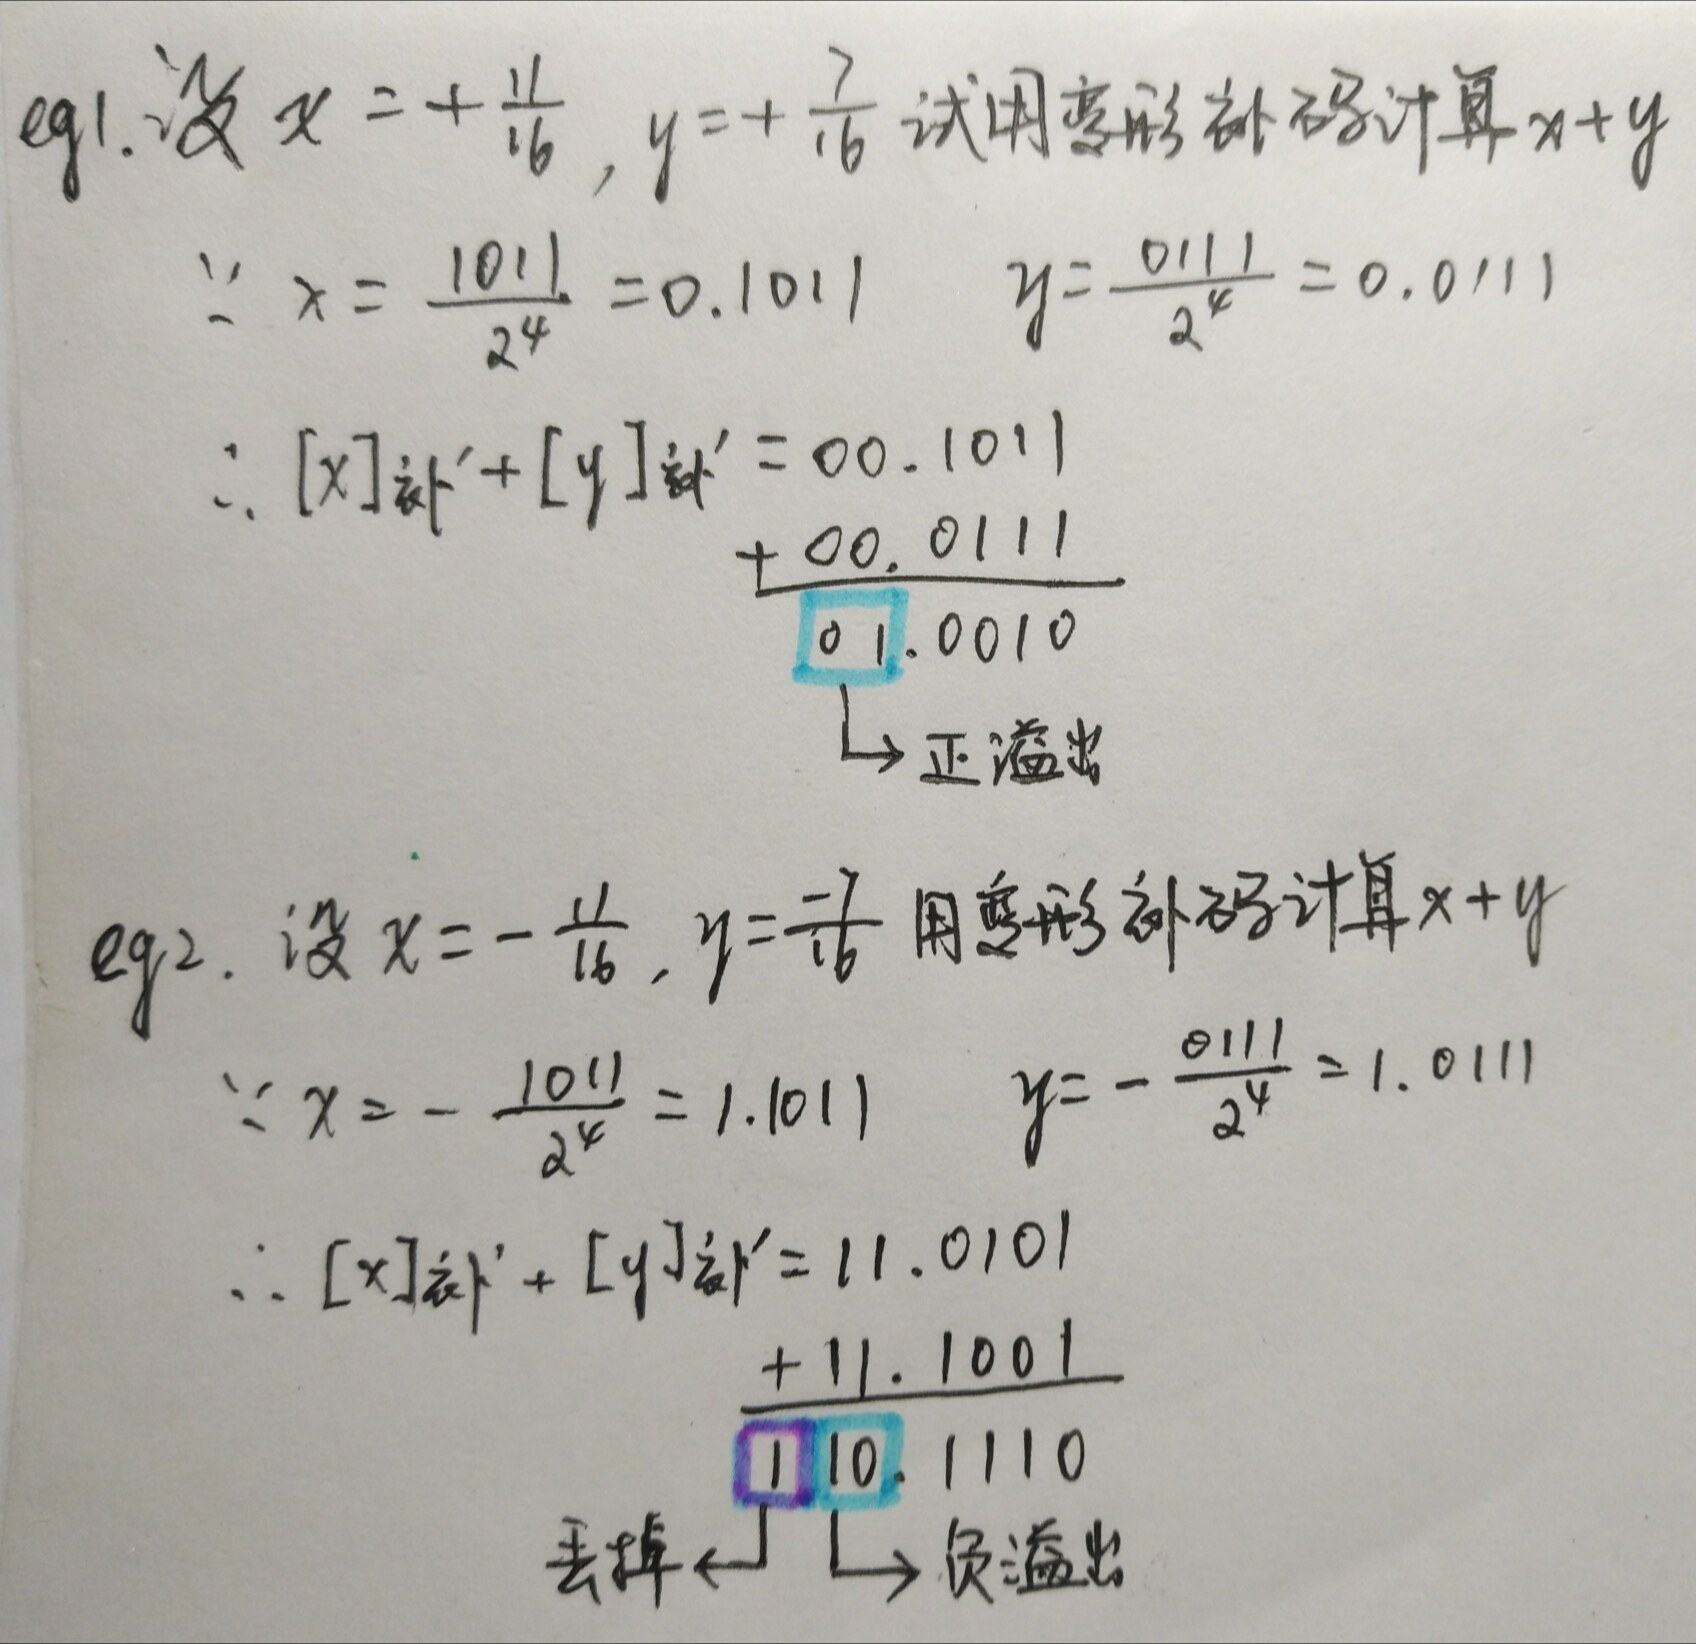 eg1. 设 x = + 11/16 , y = + 7/16 试用变形补码计算 x+y
∵ x = 1011/2⁴ = 0.1011 y = 0111/2⁴ = 0.0111
∴ [x]补' + [y]补' = 00.1011
+ 00.0111
01.0010
→ 正溢出
eg2. 设 x = - 11/16 , y = -7/16 用变形补码计算 x+y
∵ x = - 1011/2⁴ = 1.1011 y = - 0111/2⁴ = 1.0111
∴ [x]补' + [y]补' = 11.0101
+ 11.1001
1 10.1110
丢掉 ← → 负溢出